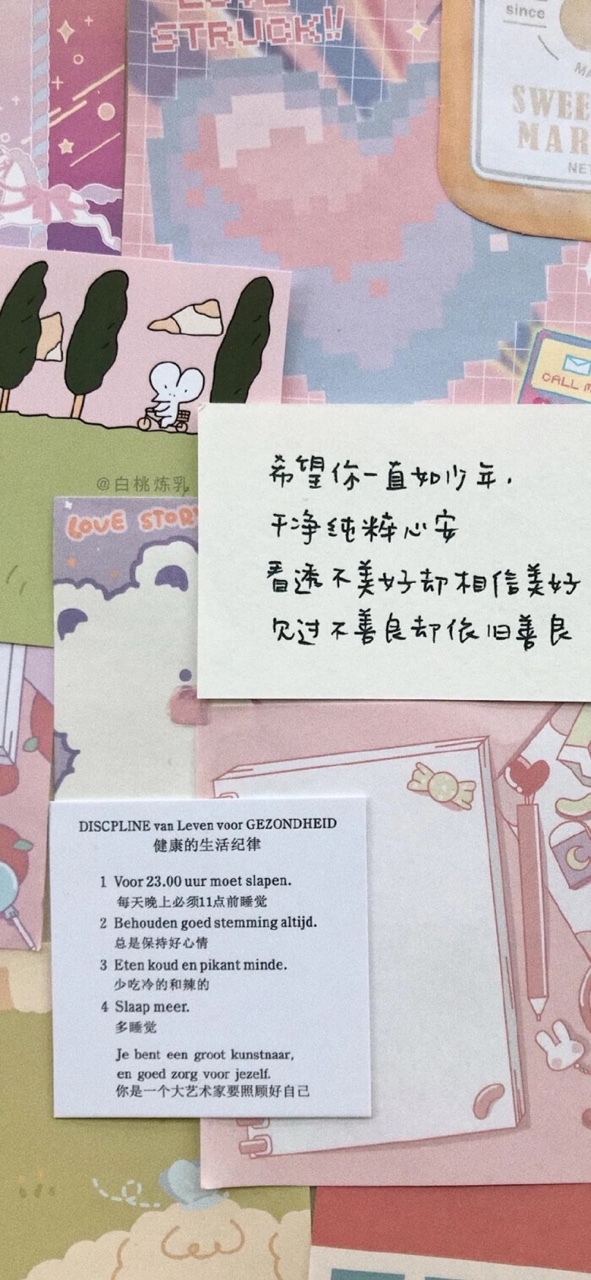 LOVE
STRUCK!!
since
SWEE
MAR
NET
CALL M
@白桃炼乳
LOVE STORY
希望你一直如少年,
干净纯粹心安
看透不美好却相信美好
见过不善良却依旧善良
DISCPLINE van Leven voor GEZONDHEID
健康的生活纪律
1 Voor 23.00 uur moet slapen.
每天晚上必须11点前睡觉
2 Behouden goed stemming altijd.
总是保持好心情
3 Eten koud en pikant minde.
少吃冷的和辣的
4 Slaap meer.
多睡觉
Je bent een groot kunstnaar,
en goed zorg voor jezelf.
你是一个大艺术家要照顾好自己